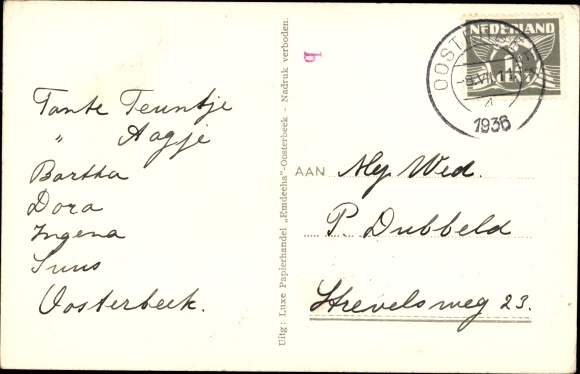 Tante Teuntje
" Aagje
Bartha
Dora
Ingena
Suus
Oosterbeek.
Uitg: Luxe Papierhandel „Emdeeha"-Oosterbeek - Nadruk verboden.
b
NEDERLAND
1936
AAN Mej Wed.
P. Dubbeld
Strevelsweg 23.